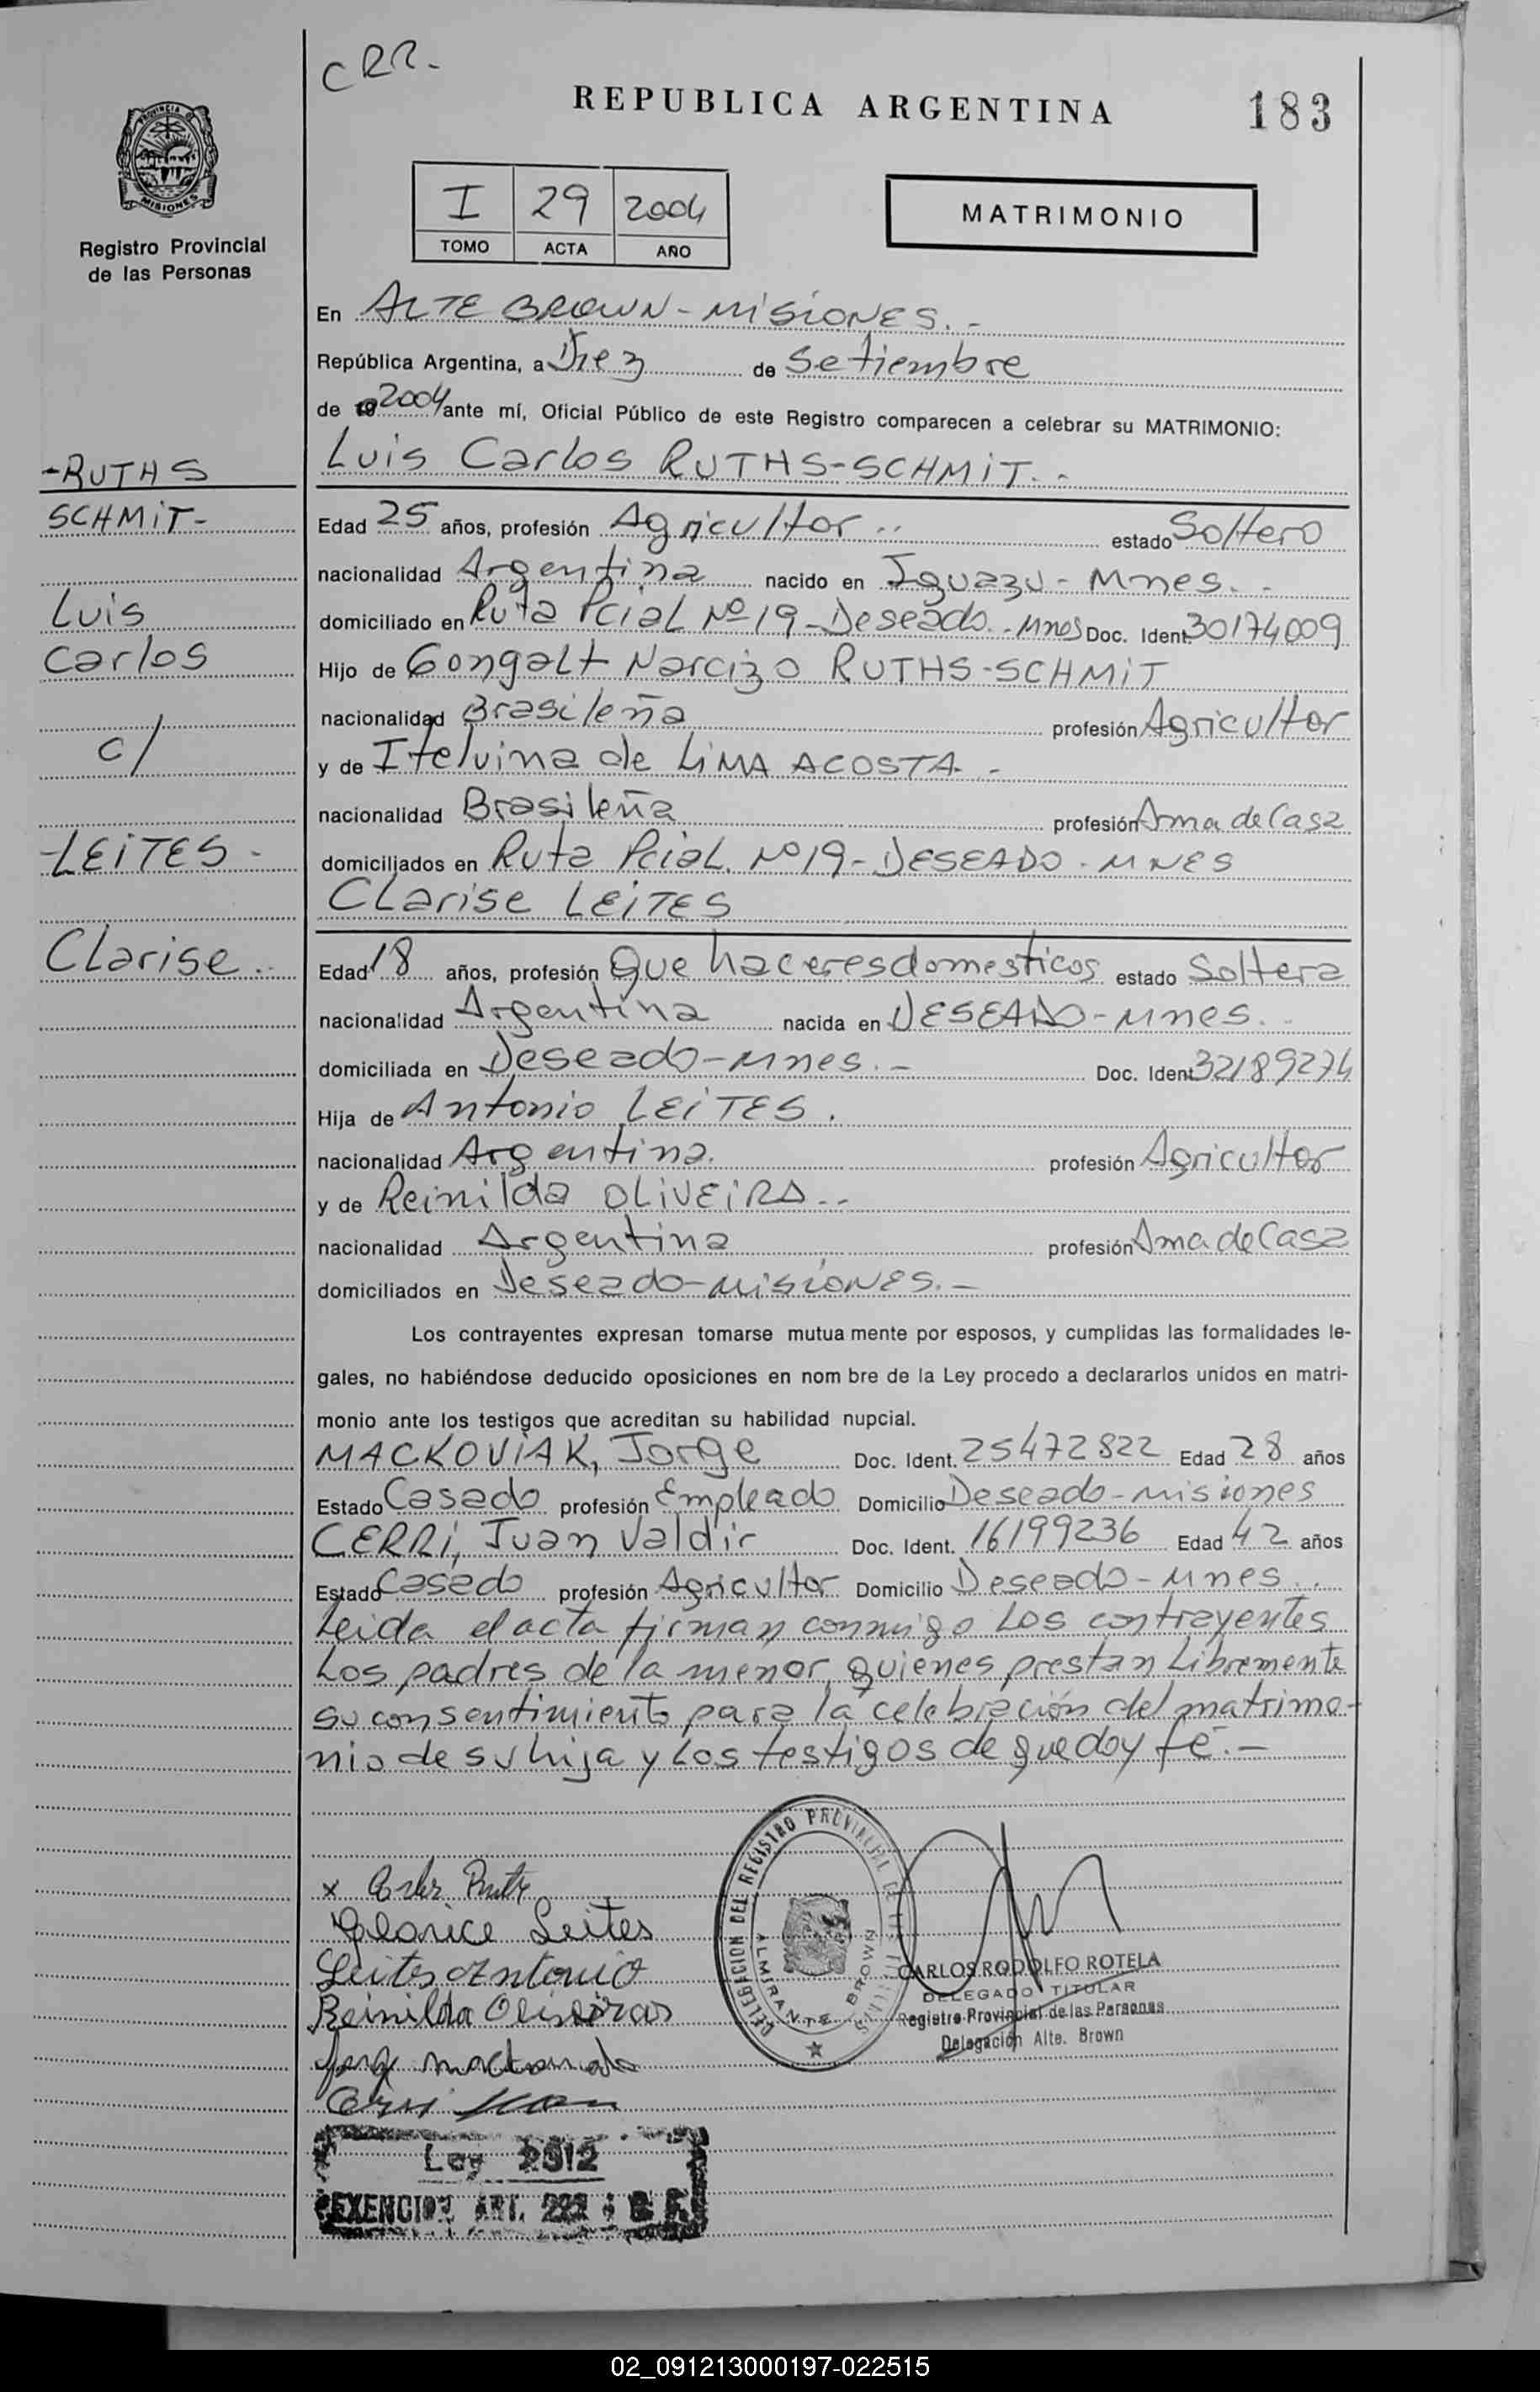 CRR.-
REPUBLICA ARGENTINA
183
PROVINCIA DE
MISIONES
Registro Provincial
de las Personas
I 29 2004
TOMO ACTA AÑO
MATRIMONIO
En ALTE BROWN - MISIONES.-
República Argentina, a Diez de Setiembre
de 19 2004 ante mí, Oficial Público de este Registro comparecen a celebrar su MATRIMONIO:
-RUTHS
SCHMIT-
Luis
Carlos
c/
-LEITES-
Clarise..
Luis Carlos RUTHS-SCHMIT.-
Edad 25 años, profesión Agricultor.. estado Soltero
nacionalidad Argentina nacido en Iguazu - Mnes.-
domiciliado en Ruta Pcial Nº 19 - Deseado.- Mnes Doc. Ident. 30174009
Hijo de Gongalt Narcizo RUTHS-SCHMIT
nacionalidad Brasileña profesión Agricultor
y de Itelvina de LIMA ACOSTA.-
nacionalidad Brasileña profesión Ama de Casa
domiciliados en Ruta Pcial. Nº 19 - DESEADO - MNES
Clarise LEITES
Edad 18 años, profesión Que haceres domesticos estado Soltera
nacionalidad Argentina nacida en DESEADO - Mnes.
domiciliada en Deseado - Mnes.- Doc. Ident. 32189274
Hija de Antonio LEITES.
nacionalidad Argentina. profesión Agricultor
y de Reinilda OLIVEIRA..
nacionalidad Argentina profesión Ama de Casa
domiciliados en Deseado - MISIONES.-
Los contrayentes expresan tomarse mutua mente por esposos, y cumplidas las formalidades le-
gales, no habiéndose deducido oposiciones en nom bre de la Ley procedo a declararlos unidos en matri-
monio ante los testigos que acreditan su habilidad nupcial.
MACKOVIAK, Jorge Doc. Ident. 25472822 Edad 28 años
Estado Casado profesión Empleado Domicilio Deseado - misiones
CERRI, Juan Valdir Doc. Ident. 16199236 Edad 42 años
Estado Casado profesión Agricultor Domicilio Deseado - Mnes..
Leida el acta firman conmigo Los contrayentes
Los padres de la menor, quienes prestan Libremente
su consentimiento para la celebración del matrimo-
nio de su hija y Los testigos de que doy fé.-
x
Clarice Leites
Leites Antonio
Reinilda
DELEGACION DEL REGISTRO PROVINCIAL DE
ALMIRANTE BROWN
CARLOS RODOLFO ROTELA
DELEGADO TITULAR
Registro Provincial de las Personas
Delegación Alte. Brown
Ley 2512
EXENCION ART.
02_091213000197-022515